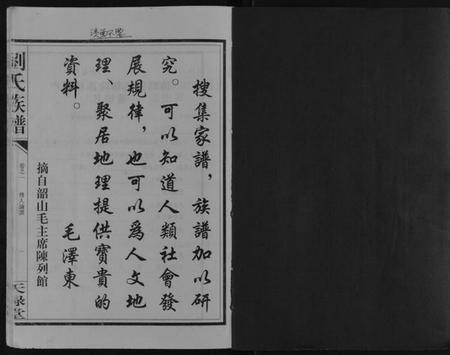 搜集家譜，族譜加以研
究。可以知道人類社會發
展規律，也可以爲人文地
理、聚居地理提供寳貴的
資料。
毛澤東
摘自韶山毛主席陳列館
劉氏族譜
卷之一
偉人論譜
一
天祿堂